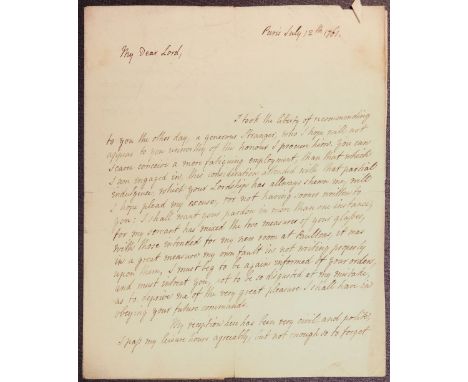 Paris July, 12th 1761.
My Dear Lord,
I took the liberty of recommending
to you the other day, a generous Stranger, who I hope will not
appear to you unworthy of the honour I procure him. You can
scarce conceive a more fatiguing employment, than that which
I am engaged in, this consideration attended with that partial
indulgence which your Lordship has allways shewn me, will
I hope plead my excuse, for not having sooner written to
you: I shall want your pardon in more than one instance,
for my servant has mixed the two measures of your glasses,
with those intended for my new room at Bulltons, it was
in a great measure my own fault in not writing properly
upon them, I must beg to be again informed of your orders,
and must intreat you, not to be so disgusted at my mistake,
as to deprive me of the very great pleasure I shall have in
obeying your future commands.
My reception here has been very civil and polite,
I pass my leisure hours agreeably, but not enough so to forget